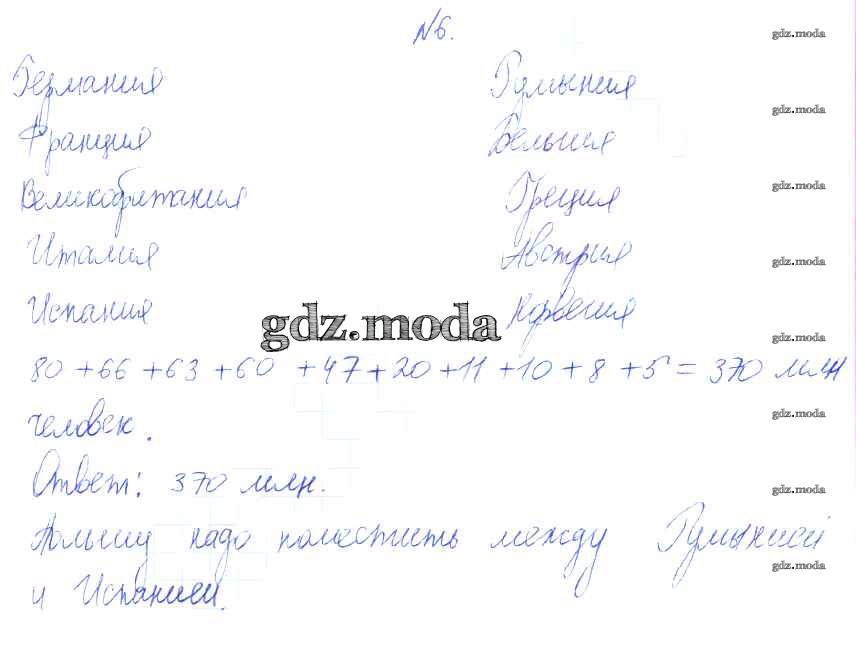 №6.
gdz.moda
Германия Румыния
gdz.moda
Франция Бельгия
gdz.moda
Великобритания Греция
Италия Австрия
gdz.moda
Испания gdz.moda Норвегия
gdz.moda
80 + 66 + 63 + 60 + 47 + 20 + 11 + 10 + 8 + 5 = 370 млн
человек.
gdz.moda
Ответ: 370 млн.
gdz.moda
Польшу надо поместить между Румынией
gdz.moda
и Испанией.